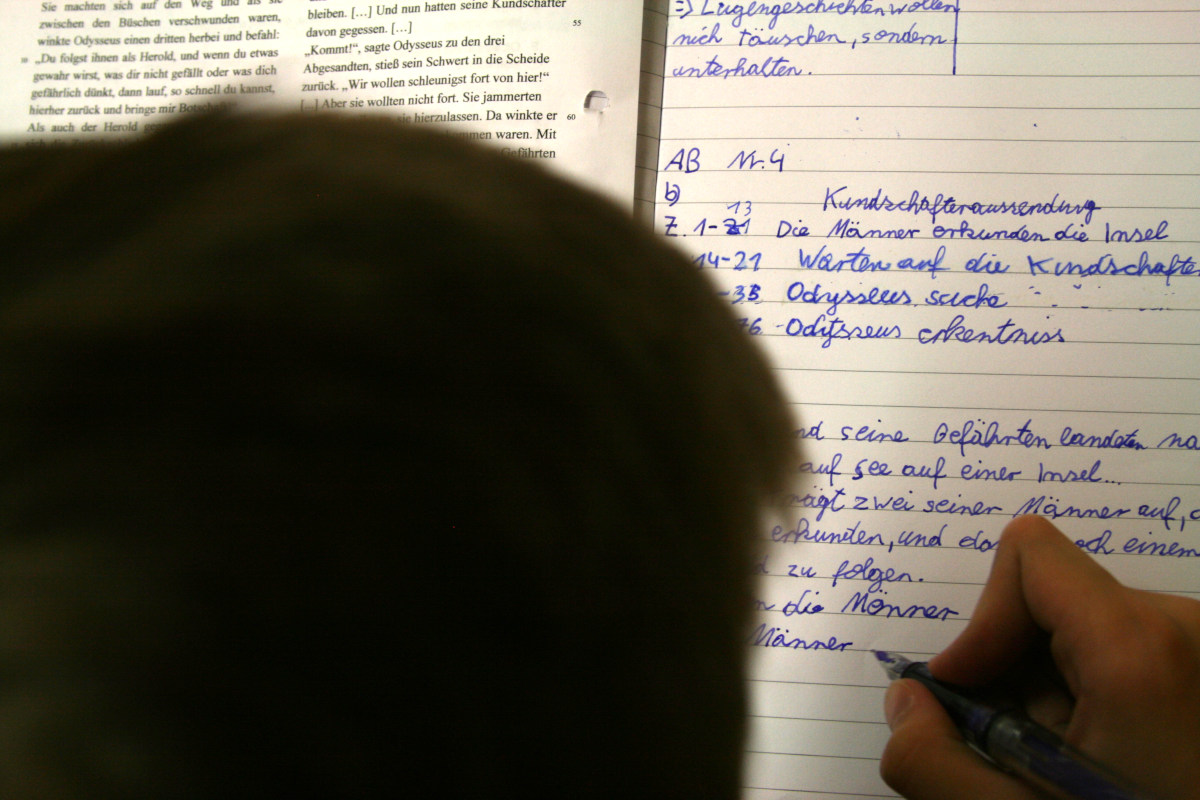 Sie machten sich auf den Weg und als sie
zwischen den Büschen verschwunden waren,
winkte Odysseus einen dritten herbei und befahl:
„Du folgst ihnen als Herold, und wenn du etwas
gewahr wirst, was dir nicht gefällt oder was dich
gefährlich dünkt, dann lauf, so schnell du kannst,
hierher zurück und bringe mir
Als auch der Herold
bleiben. […] Und nun hatten seine Kundschafter
davon gegessen. […]
55
„Kommt!“, sagte Odysseus zu den drei
Abgesandten, stieß sein Schwert in die Scheide
zurück. „Wir wollen schleunigst fort von hier!“
[…] Aber sie wollten nicht fort. Sie jammerten
sie hierzulassen. Da winkte er 60
waren. Mit
Gefährten
=> Lügengeschichten wollen
nich täuschen, sondern
unterhalten.
AB Nr. 4
b)
13 Kundschafteraussendung
Z. 1-21 Die Männer erkunden die Insel
14-21 Warten auf die Kundschafte
-33 Odysseus suche
76 -Odysseus erkentniss
nd seine Gefährten landeten na
auf See auf einer Insel...
rägt zwei seiner Männer auf, d
erkunden, und einem
zu folgen.
n die Männer
Männer